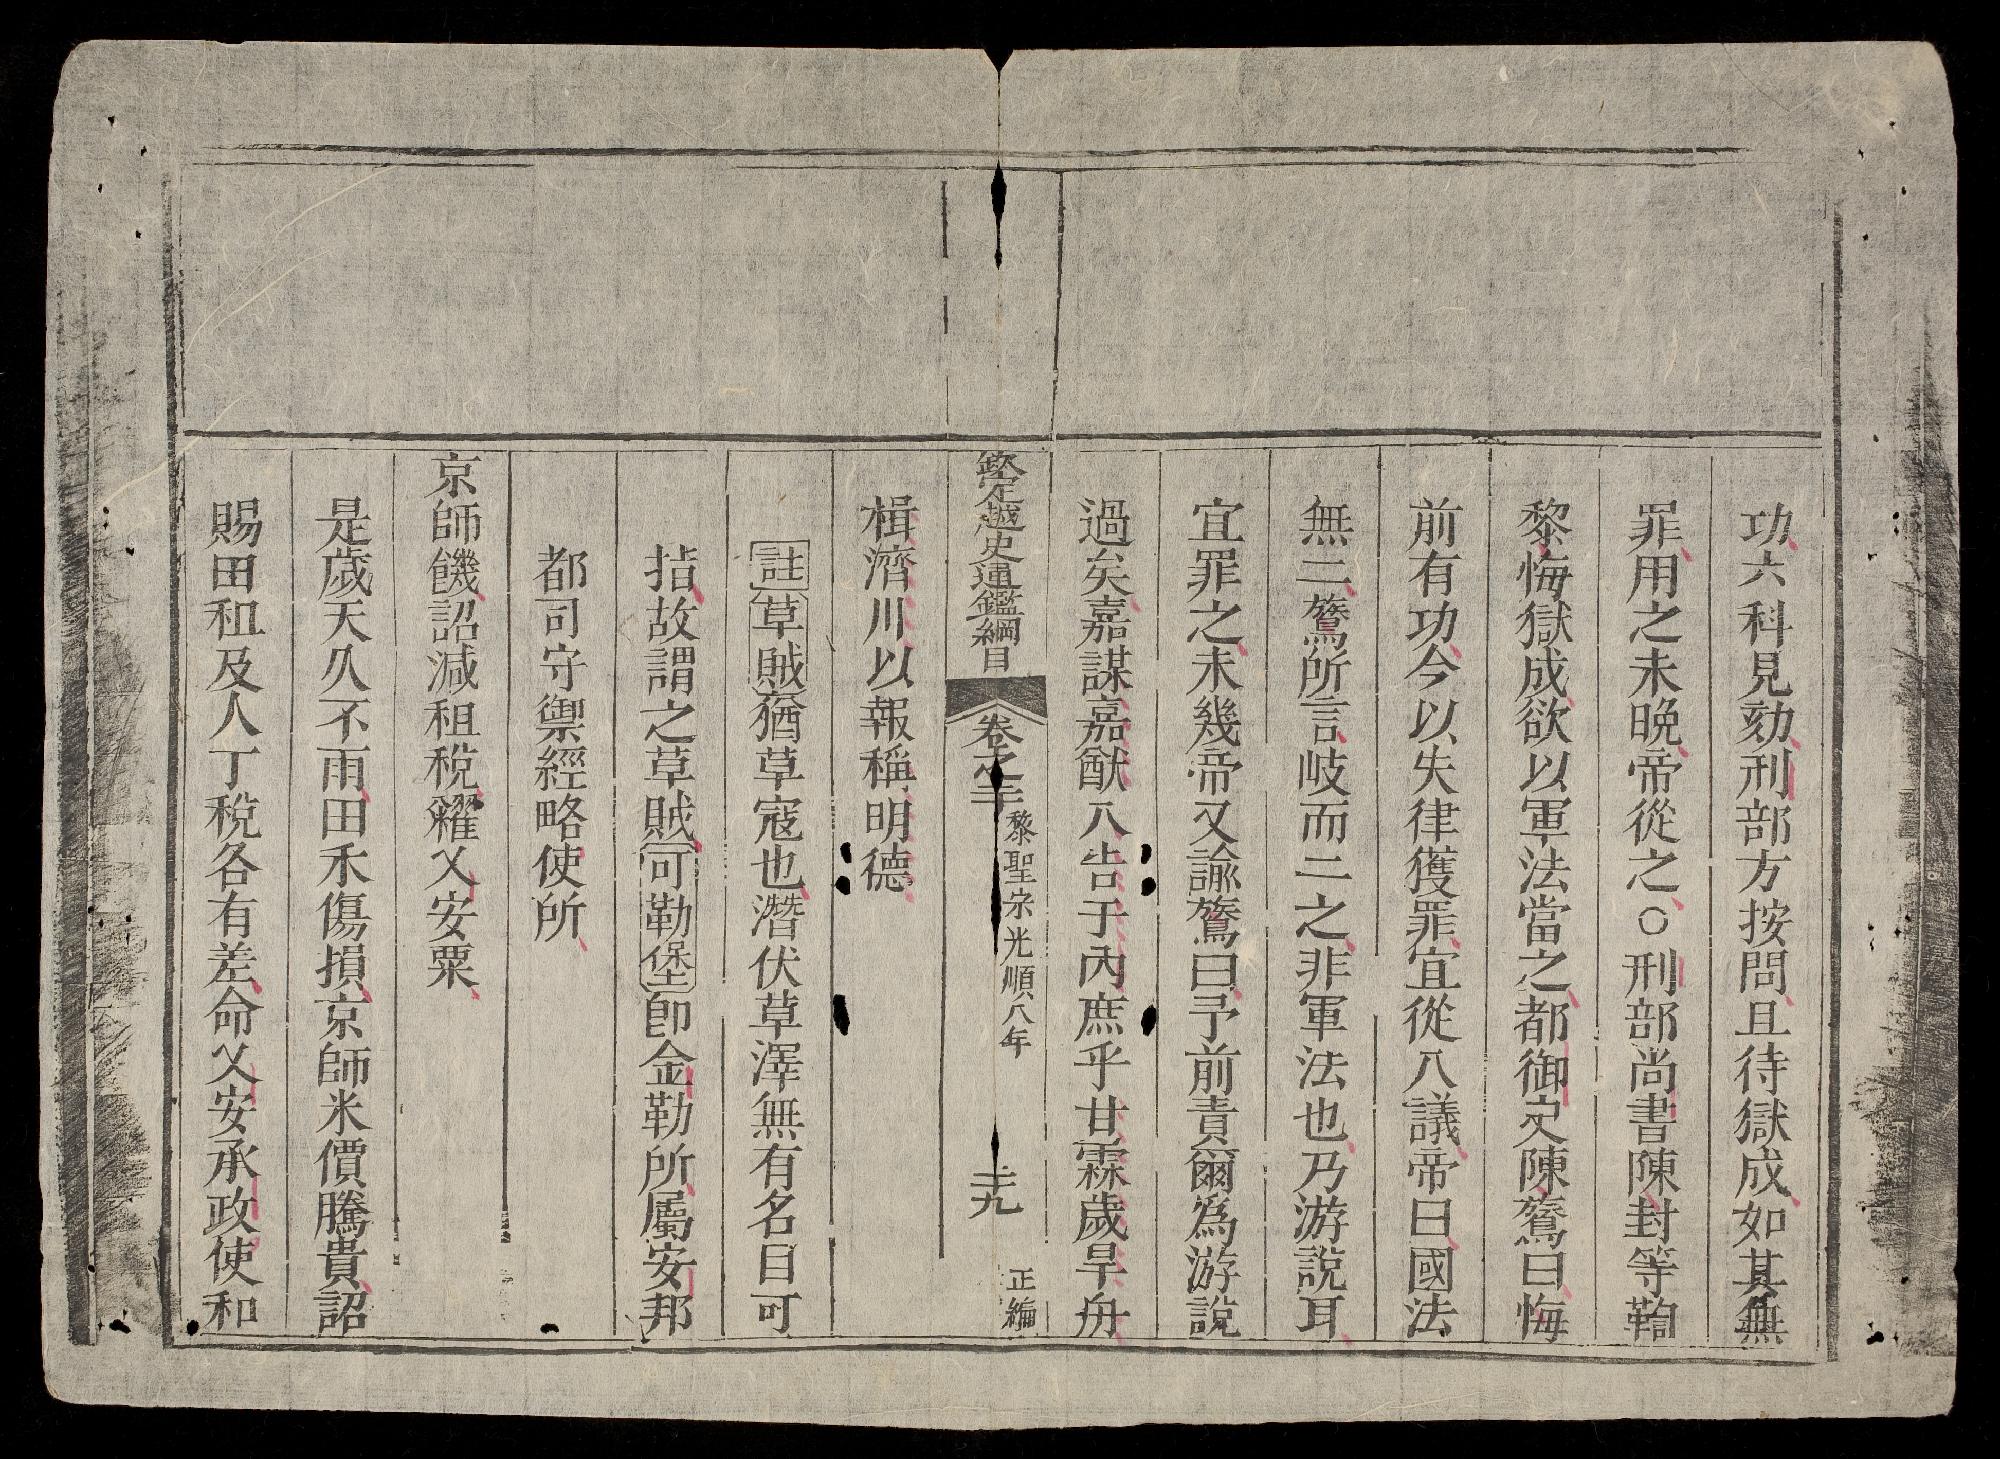 功六科見劾刑部方按問且待獄成如其無
罪用之未晚帝從之○刑部尚書陳封等鞫
黎悔獄成欲以軍法當之都御史陳騖曰悔
前有功今以失律獲罪宜從八議帝曰國法
無二騖所言岐而二之非軍法也乃游說耳
宜罪之未幾帝又諭騖曰予前責爾爲游說
過矣嘉謀嘉猷入告于內庶乎甘霖歲旱舟
楫濟川以報稱明德
欽定越史通鑑綱目 卷之 黎聖宗光順八年 二十九 正編
註草賊猶草寇也潛伏草澤無有名目可
指故謂之草賊可勒堡卽金勒所屬安邦
都司守禦經略使所
京師饑詔減租稅糴乂安粟
是歲天久不雨田禾傷損京師米價騰貴詔
賜田租及人丁稅各有差命乂安承政使和